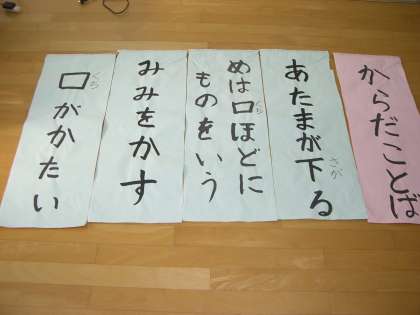 からだことば
あたまが下る
さが
めは口ほどに
くち
ものをいう
みみをかす
口がかたい
くち